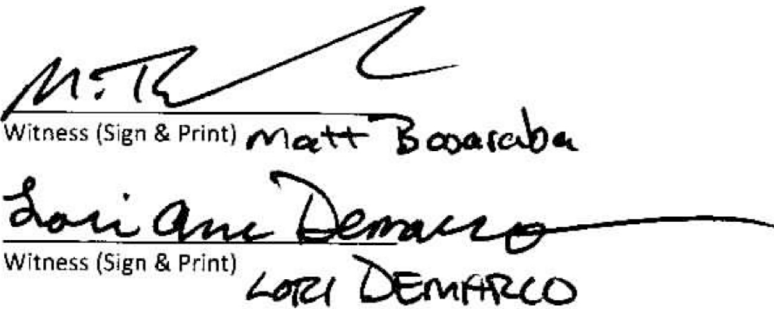 Witness (Sign & Print) Matt Bosaraba
Lori Ann Demarco
Witness (Sign & Print)
LORI DEMARCO